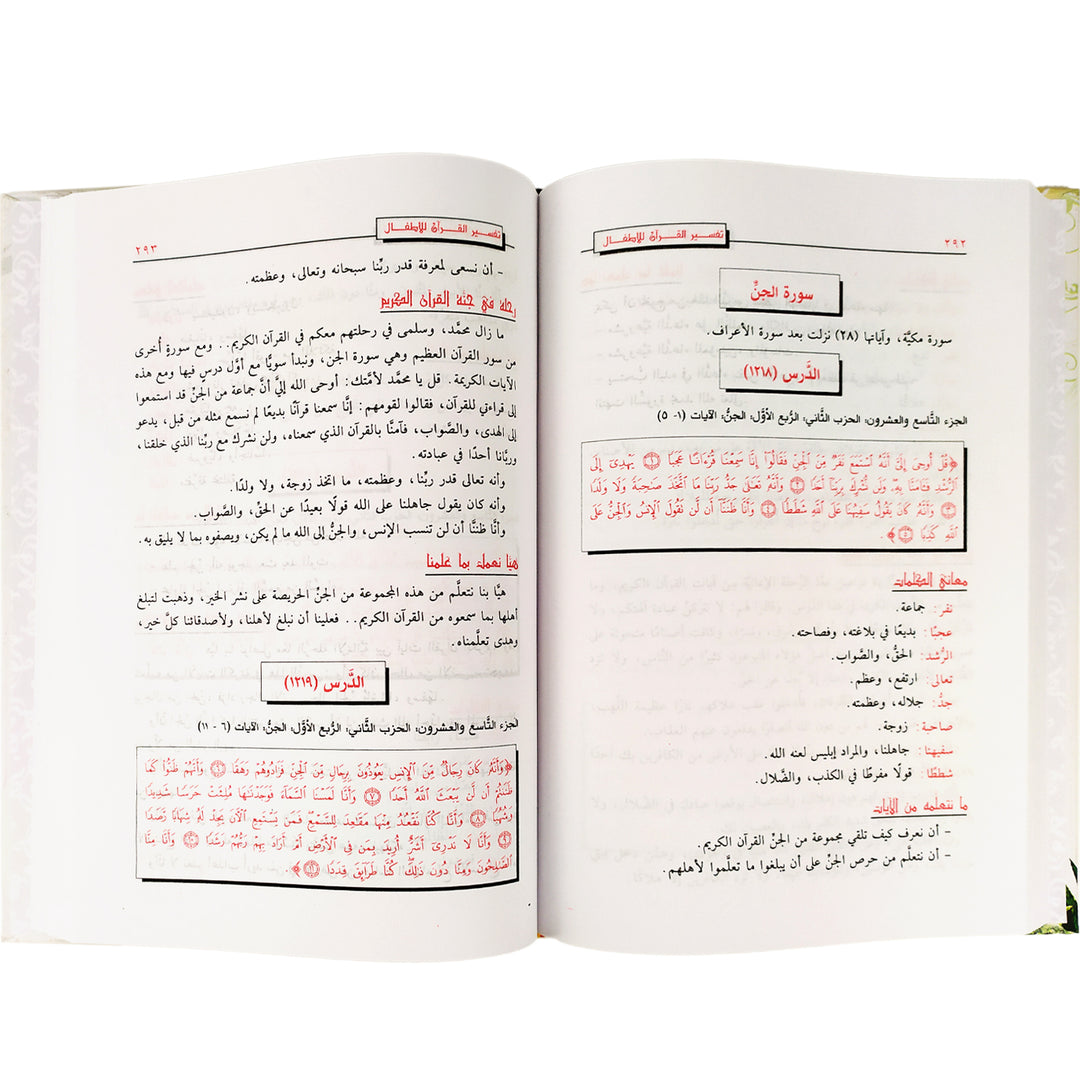 تفسير القرآن للأطفال
٢٩٢
سورة الجنِّ
سورة مكيَّة، وآياتها (٢٨) نزلت بعد سورة الأعراف.
الدَّرس (١٢١٨)
الجزء التَّاسع والعشرون: الحزب الثَّاني: الرُّبع الأوَّل: الجنُّ: الآيات (١- ٥)
﴿قُلْ أُوحِىَ إِلَىَّ أَنَّهُ ٱسْتَمَعَ نَفَرٌ مِّنَ ٱلْجِنِّ فَقَالُوٓا۟ إِنَّا سَمِعْنَا قُرْءَانًا عَجَبًا ﴿١﴾ يَهْدِىٓ إِلَى
ٱلرُّشْدِ فَـَٔامَنَّا بِهِۦ وَلَن نُّشْرِكَ بِرَبِّنَآ أَحَدًا ﴿٢﴾ وَأَنَّهُۥ تَعَٰلَىٰ جَدُّ رَبِّنَا مَا ٱتَّخَذَ صَٰحِبَةً وَلَا وَلَدًا
﴿٣﴾ وَأَنَّهُۥ كَانَ يَقُولُ سَفِيهُنَا عَلَى ٱللَّهِ شَطَطًا ﴿٤﴾ وَأَنَّا ظَنَنَّآ أَن لَّن تَقُولَ ٱلْإِنسُ وَٱلْجِنُّ عَلَى
ٱللَّهِ كَذِبًا ﴿٥﴾﴾.
معاني الكلمات
نفر: جماعة.
عجبًا: بديعًا في بلاغته، وفصاحته.
الرُّشد: الحقُّ، والصَّواب.
تعالى: ارتفع، وعظم.
جدُّ: جلاله، وعظمته.
صاحبة: زوجة.
سفيهنا: جاهلنا، والمراد إبليس لعنه الله.
شططًا: قولًا مفرطًا في الكذب، والضَّلال.
ما نتعلمه من الآيات
– أن نعرف كيف تلقي مجموعة من الجنِّ القرآن الكريم.
– أن نتعلَّم من حرص الجنِّ على أن يبلغوا ما تعلَّموا لأهلهم.
تفسير القرآن للأطفال
٢٩٣
– أن نسعى لمعرفة قدر ربِّنا سبحانه وتعالى، وعظمته.
رحلة في جنة القرآن الكريم
ما زال محمَّد، وسلمى في رحلتهم معكم في القرآن الكريم.. ومع سورةٍ أُخرى
من سور القرآن العظيم وهي سورة الجن، ونبدأ سويًّا مع أوَّل درس فيها ومع هذه
الآيات الكريمة. قل يا محمَّد لأمَّتك: أوحى الله إليَّ أنَّ جماعة من الجنِّ قد استمعوا
إلى قراءتي للقرآن، فقالوا لقومهم: إنَّا سمعنا قرآنًا بديعًا لم نسمع مثله من قبل، يدعو
إلى الهدى، والصَّواب، فآمنَّا بالقرآن الذي سمعناه، ولن نشرك مع ربِّنا الذي خلقنا،
وربَّانا أحدًا في عبادته.
وأنه تعالى قدر ربِّنا، وعظمته، ما اتخذ زوجة، ولا ولدًا.
وأنه كان يقول جاهلنا على الله قولًا بعيدًا عن الحقِّ، والصَّواب.
وأنَّا ظننَّا أن لن تنسب الإنس، والجنُّ إلى الله ما لم يكن، ويصفوه بما لا يليق به.
هيا نعمل بما علمنا
هيَّا بنا نتعلَّم من هذه المجموعة من الجنِّ الحريصة على نشر الخير، وذهبت لتبلغ
أهلها بما سمعوه من القرآن الكريم.. فعلينا أن نبلغ لأهلنا، ولأصدقائنا كلَّ خير،
وهدى تعلَّمناه.
الدَّرس (١٢١٩)
الجزء التَّاسع والعشرون: الحزب الثَّاني: الرُّبع الأوَّل: الجنُّ: الآيات (٦ - ١١)
﴿وَأَنَّهُۥ كَانَ رِجَالٌ مِّنَ ٱلْإِنسِ يَعُوذُونَ بِرِجَالٍ مِّنَ ٱلْجِنِّ فَزَادُوهُمْ رَهَقًا ﴿٦﴾ وَأَنَّهُمْ ظَنُّوا۟ كَمَا
ظَنَنتُمْ أَن لَّن يَبْعَثَ ٱللَّهُ أَحَدًا ﴿٧﴾ وَأَنَّا لَمَسْنَا ٱلسَّمَآءَ فَوَجَدْنَٰهَا مُلِئَتْ حَرَسًا شَدِيدًا
وَشُهُبًا ﴿٨﴾ وَأَنَّا كُنَّا نَقْعُدُ مِنْهَا مَقَٰعِدَ لِلسَّمْعِ فَمَن يَسْتَمِعِ ٱلْءَانَ يَجِدْ لَهُۥ شِهَابًا رَّصَدًا
﴿٩﴾ وَأَنَّا لَا نَدْرِىٓ أَشَرٌّ أُرِيدَ بِمَن فِى ٱلْأَرْضِ أَمْ أَرَادَ بِهِمْ رَبُّهُمْ رَشَدًا ﴿١٠﴾ وَأَنَّا مِنَّا
ٱلصَّٰلِحُونَ وَمِنَّا دُونَ ذَٰلِكَ كُنَّا طَرَآئِقَ قِدَدًا ﴿١١﴾﴾.